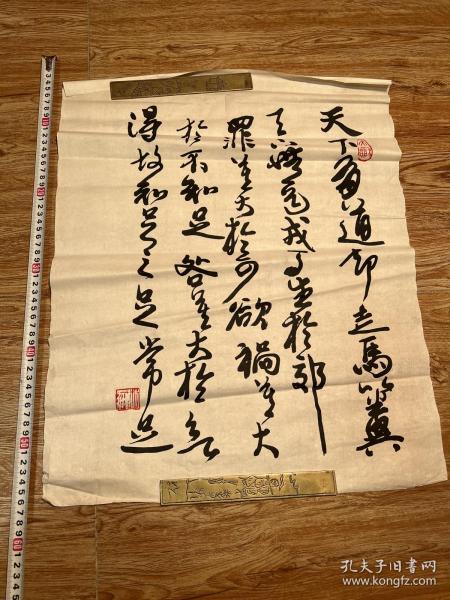 天下有道却走馬以糞
天下無道戎马生於郊
罪莫大於可欲禍莫大
於不知足咎莫大於欲
得故知足之足常足
孔夫子旧书网
www.kongfz.com